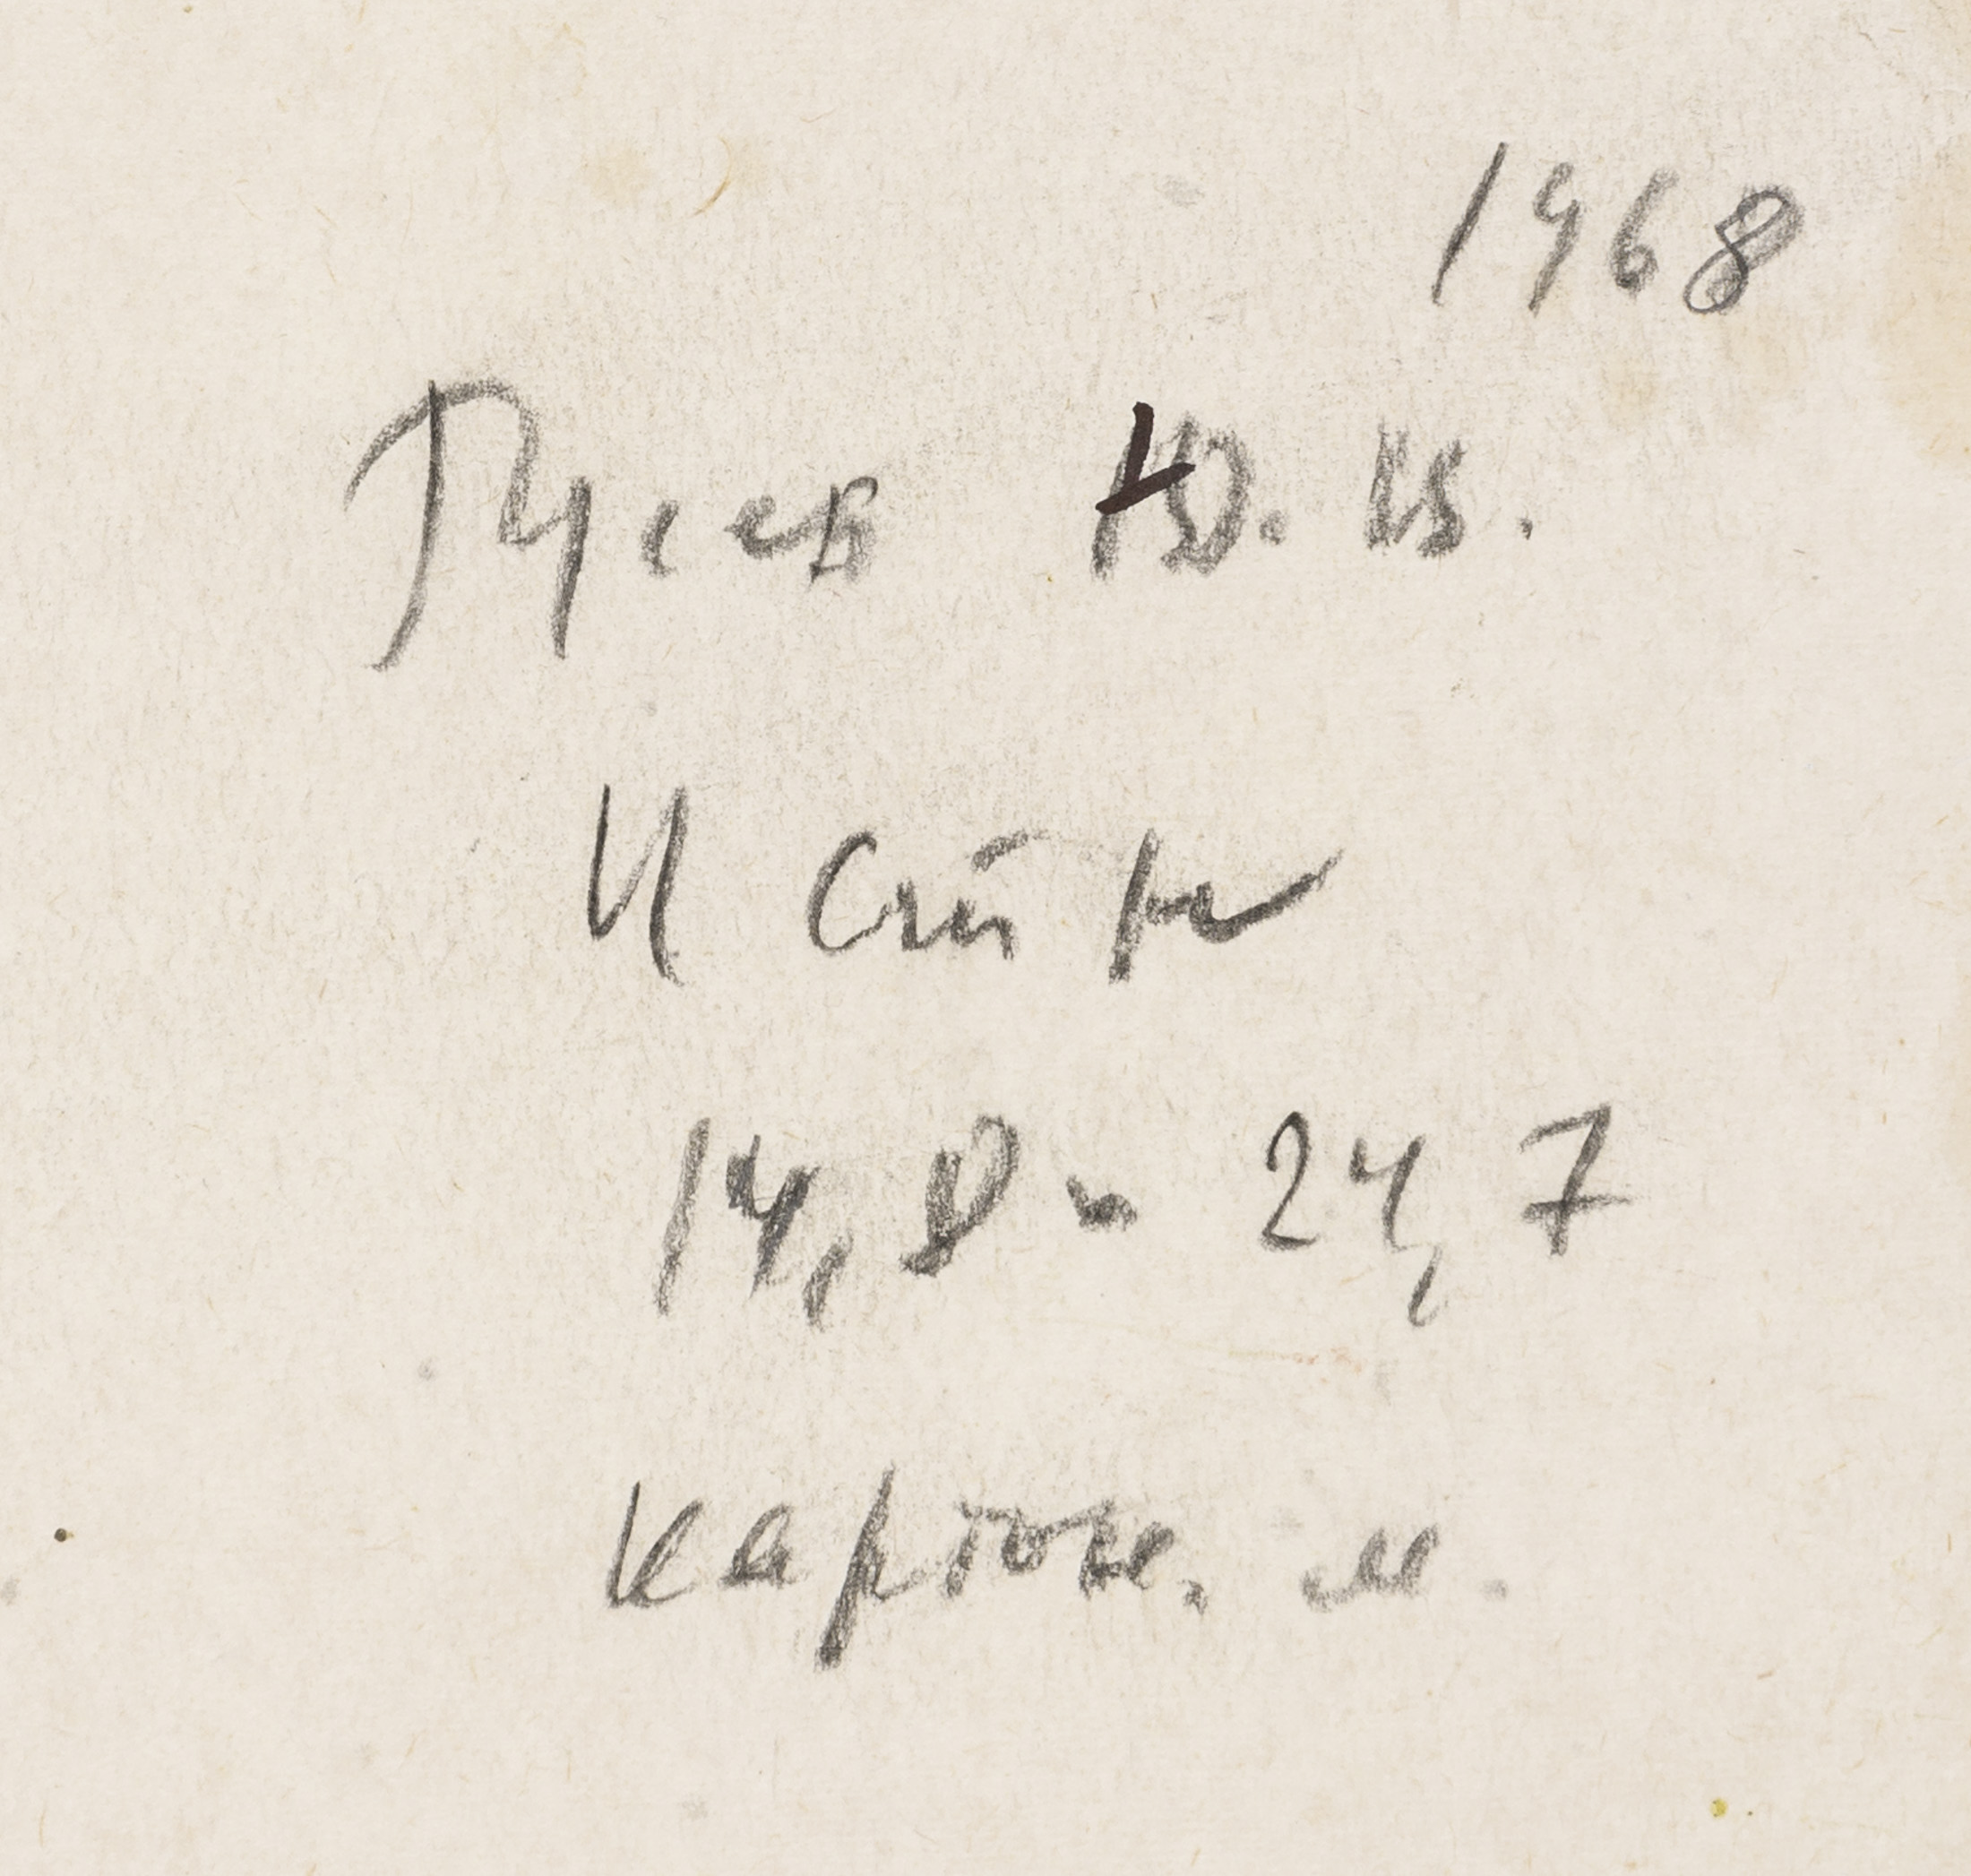 1968
Гусев Ю. К.
14,8 х 24,7
картон. м.